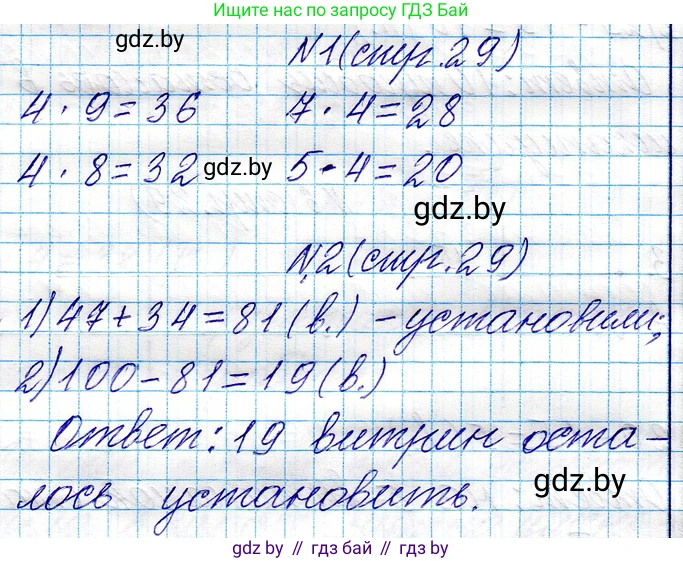 Ищите нас по запросу ГДЗ Бай
gdz.by
№1(стр.29)
4·9=36 7·4=28
4·8=32 gdz.by 5·4=20
gdz.by
№2(стр.29)
1)47+34=81(в.)-установили;
2)100-81=19(в.)
Ответ: 19 витрин оста-
лось установить.
gdz.by
gdz.by // гдз бай // гдз by